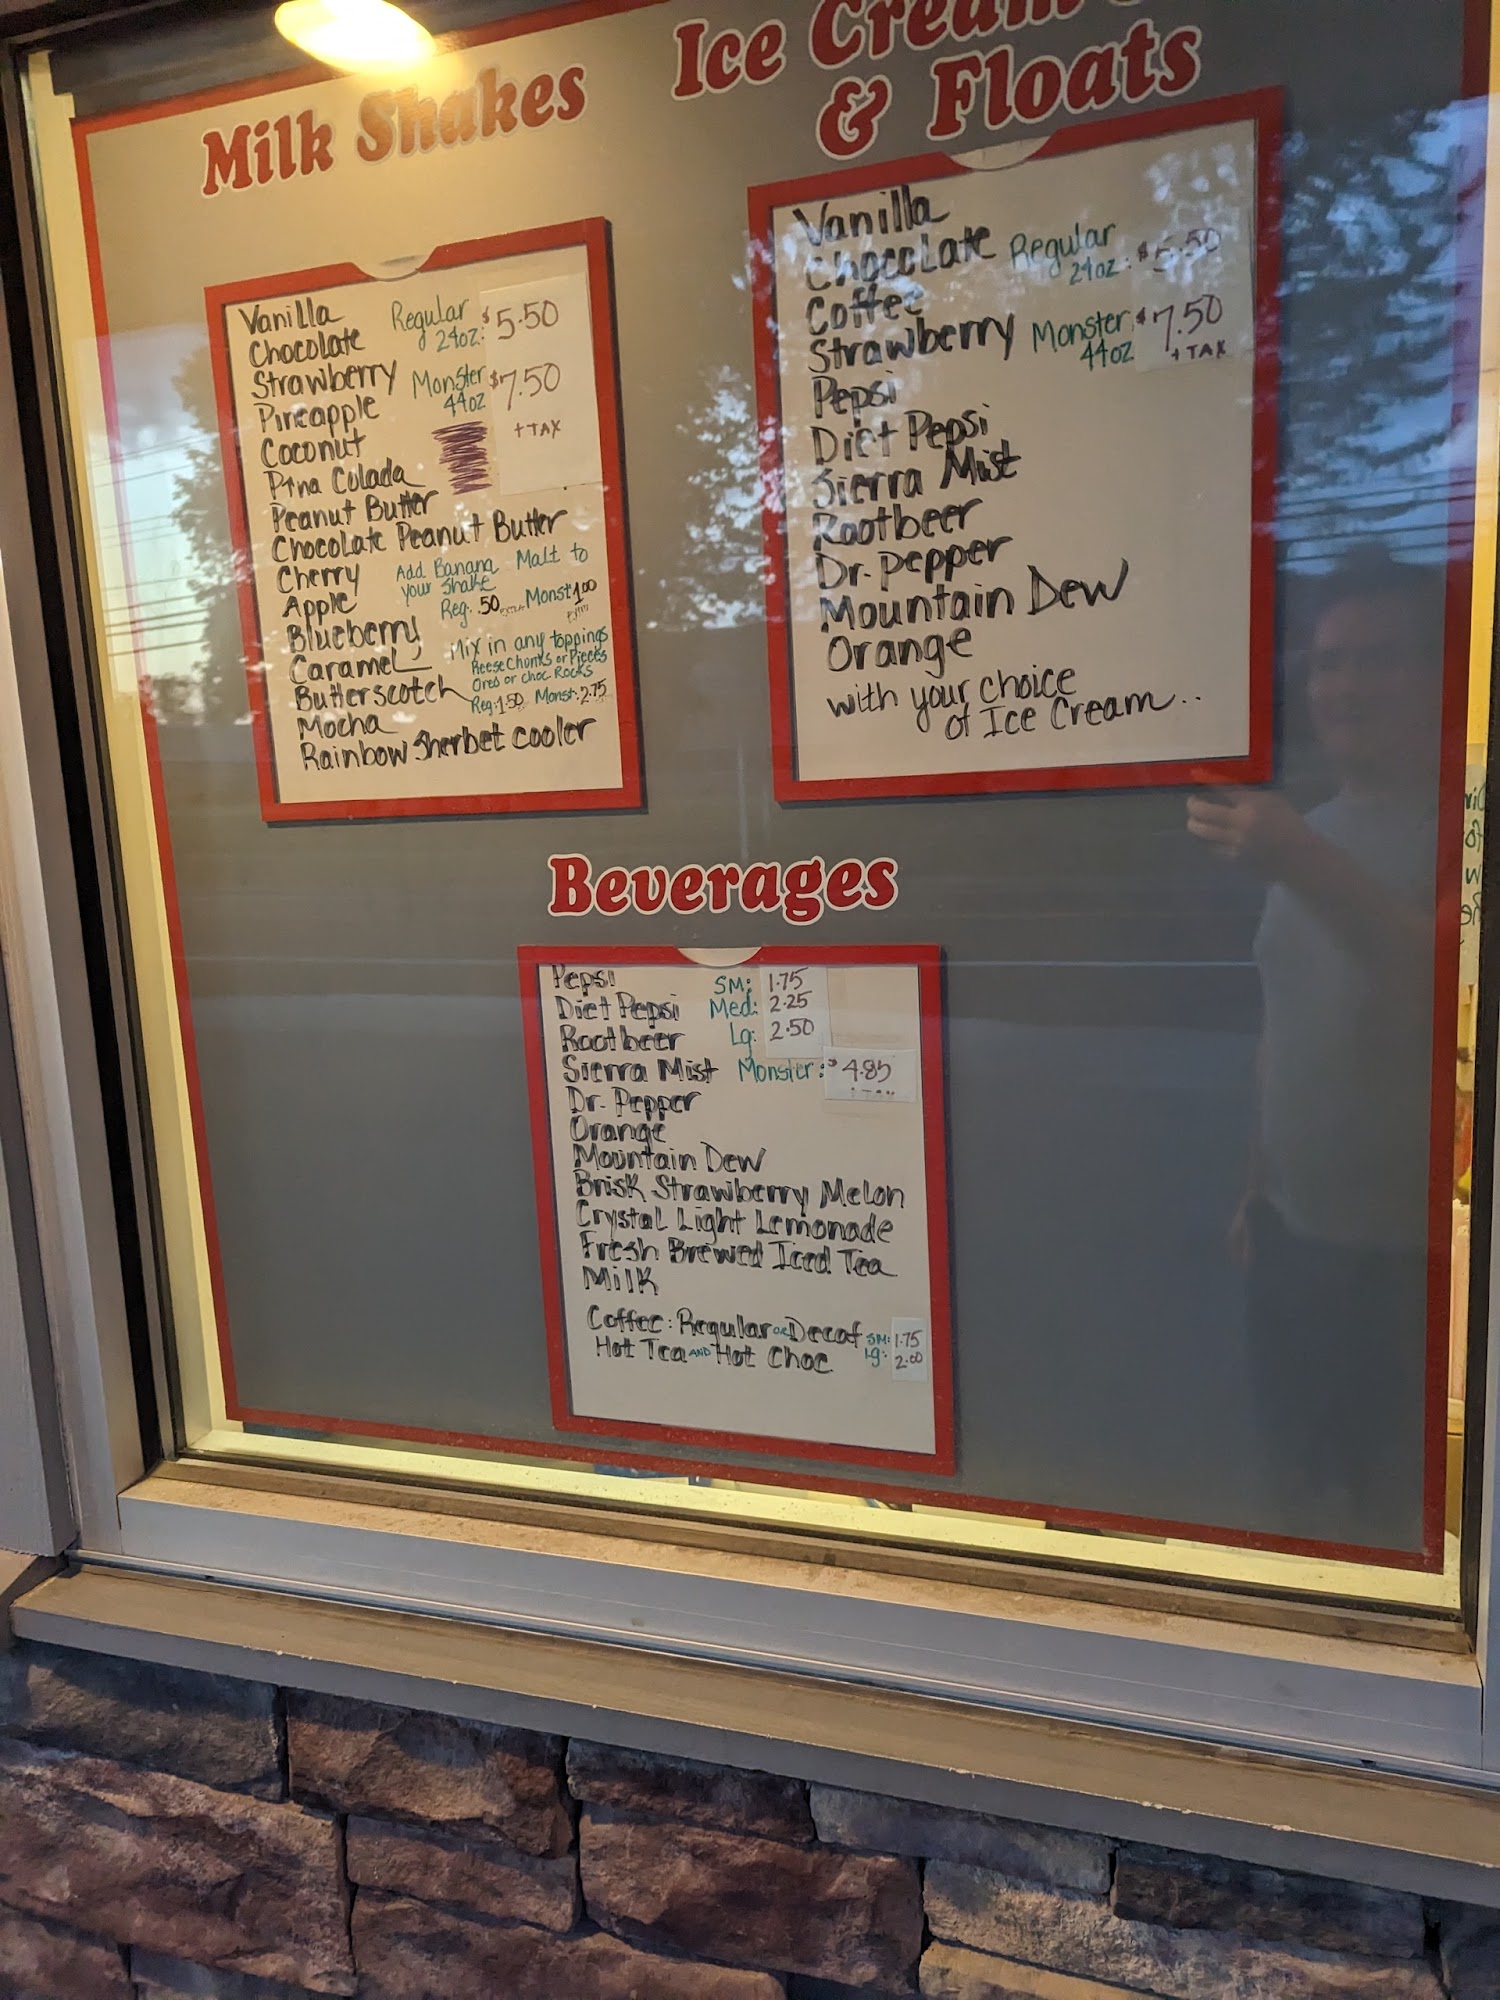 Milk Shakes
Vanilla
Chocolate
Strawberry
Pineapple
Coconut
Pina Colada
Peanut Butter
Chocolate Peanut Butter
Cherry
Apple
Blueberry
Caramel
Butterscotch
Mocha
Rainbow Sherbet cooler
Regular $5.50
24oz:
Monster $7.50
44oz
+ TAX
Add Banana Malt to
your Shake
Reg: .50 Monst: 1.00
Mix in any toppings
Reese Chunks or Pieces
Oreo or choc Rocks
Reg: 1.50 Monst: 2.75
Ice Cream
& Floats
Vanilla
Chocolate
Coffee
Strawberry
Pepsi
Diet Pepsi
Sierra Mist
Rootbeer
Dr. Pepper
Mountain Dew
Orange
with your choice
of Ice Cream..
Regular $5.50
24oz:
Monster: $7.50
44oz + TAX
Beverages
Pepsi
Diet Pepsi
Rootbeer
Sierra Mist
Dr. Pepper
Orange
Mountain Dew
Brisk Strawberry Melon
Crystal Light Lemonade
Fresh Brewed Iced Tea
Milk
SM: 1.75
Med: 2.25
Lg: 2.50
Monster: $4.85
Coffee: Regular or Decaf SM: 1.75
Hot Tea AND Hot Choc Lg: 2.00